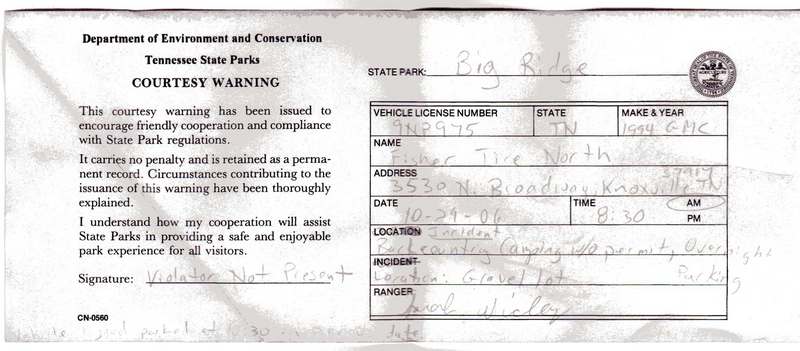 Department of Environment and Conservation
Tennessee State Parks
COURTESY WARNING
This courtesy warning has been issued to
encourage friendly cooperation and compliance
with State Park regulations.
It carries no penalty and is retained as a perma-
nent record. Circumstances contributing to the
issuance of this warning have been thoroughly
explained.
I understand how my cooperation will assist
State Parks in providing a safe and enjoyable
park experience for all visitors.
Signature: Violator Not Present
CN-0560
STATE PARK: Big Ridge
VEHICLE LICENSE NUMBER STATE MAKE & YEAR
9NP975 TN 1994 GMC
NAME
Fisher Tire North
ADDRESS 37917
3530 N. Broadway, Knoxville TN
DATE TIME AM
10-29-06 8:30 PM
LOCATION Incident
Backcountry Camping w/o permit, Overnight
Parking
INCIDENT
Location: Gravel lot
RANGER
date